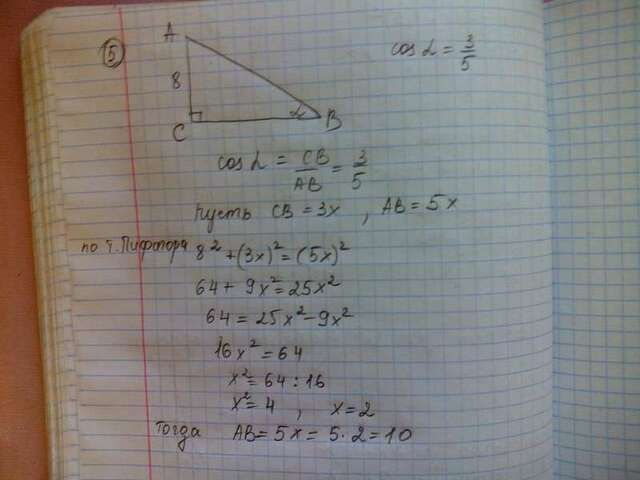 5
A
cos α = 3/5
8
C
α
B
cos α = CB/AB = 3/5
Пусть CB = 3x , AB = 5x
по т. Пифагора 8² + (3x)² = (5x)²
64 + 9x² = 25x²
64 = 25x² - 9x²
16x² = 64
x² = 64 : 16
x² = 4 , x = 2
Тогда AB = 5x = 5 · 2 = 10